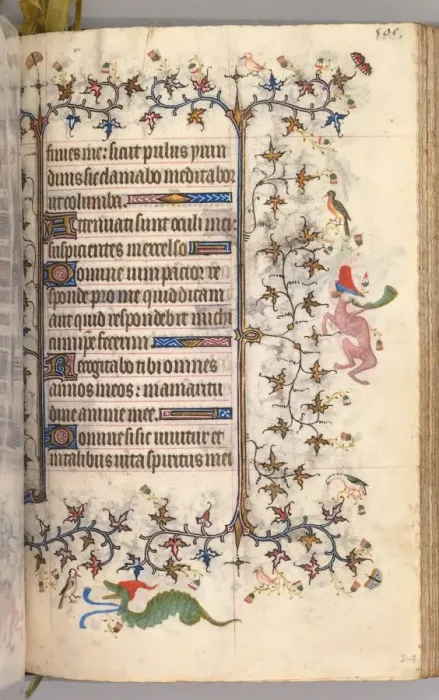 505.
finies me: sicut pullus yrun
dinis sic clamabo meditabor
ut columba.
Attenuati sunt oculi mei:
suspicientes in excelso
Domine vim pacior re
sponde pro me quid dicam
aut quid respondebit michi
cum ipse fecerim.
Recogitabo tibi omnes
annos meos: in amaritu
dine anime mee.
Domine si sic vivitur et
in talibus vita spiritus mei